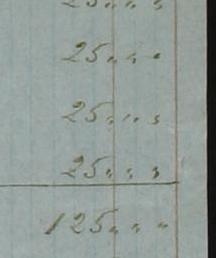 25 " " "
25 " " "
25 " " "
25 " " "
125 " " "